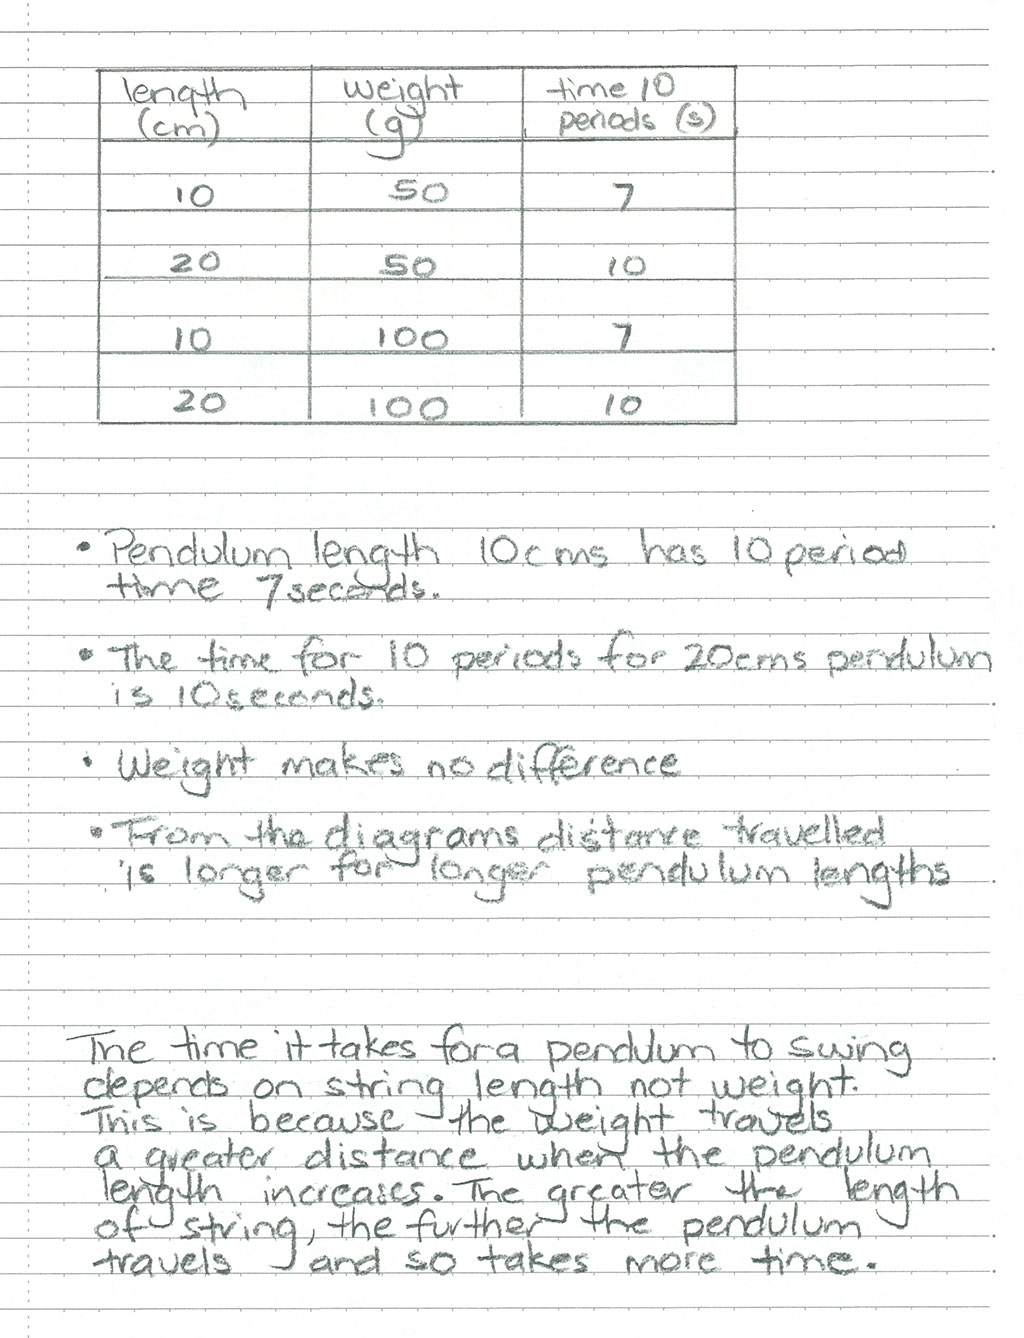 length weight time 10
(cm) (g) periods (s)
10 50 7
20 50 10
10 100 7
20 100 10
• Pendulum length 10cms has 10 period
time 7seconds.
• The time for 10 periods for 20cms pendulum
is 10seconds.
• Weight makes no difference
• From the diagrams distance travelled
is longer for longer pendulum lengths
The time it takes for a pendulum to swing
depends on string length not weight.
This is because the weight travels
a greater distance when the pendulum
length increases. The greater the length
of string, the further the pendulum
travels and so takes more time.